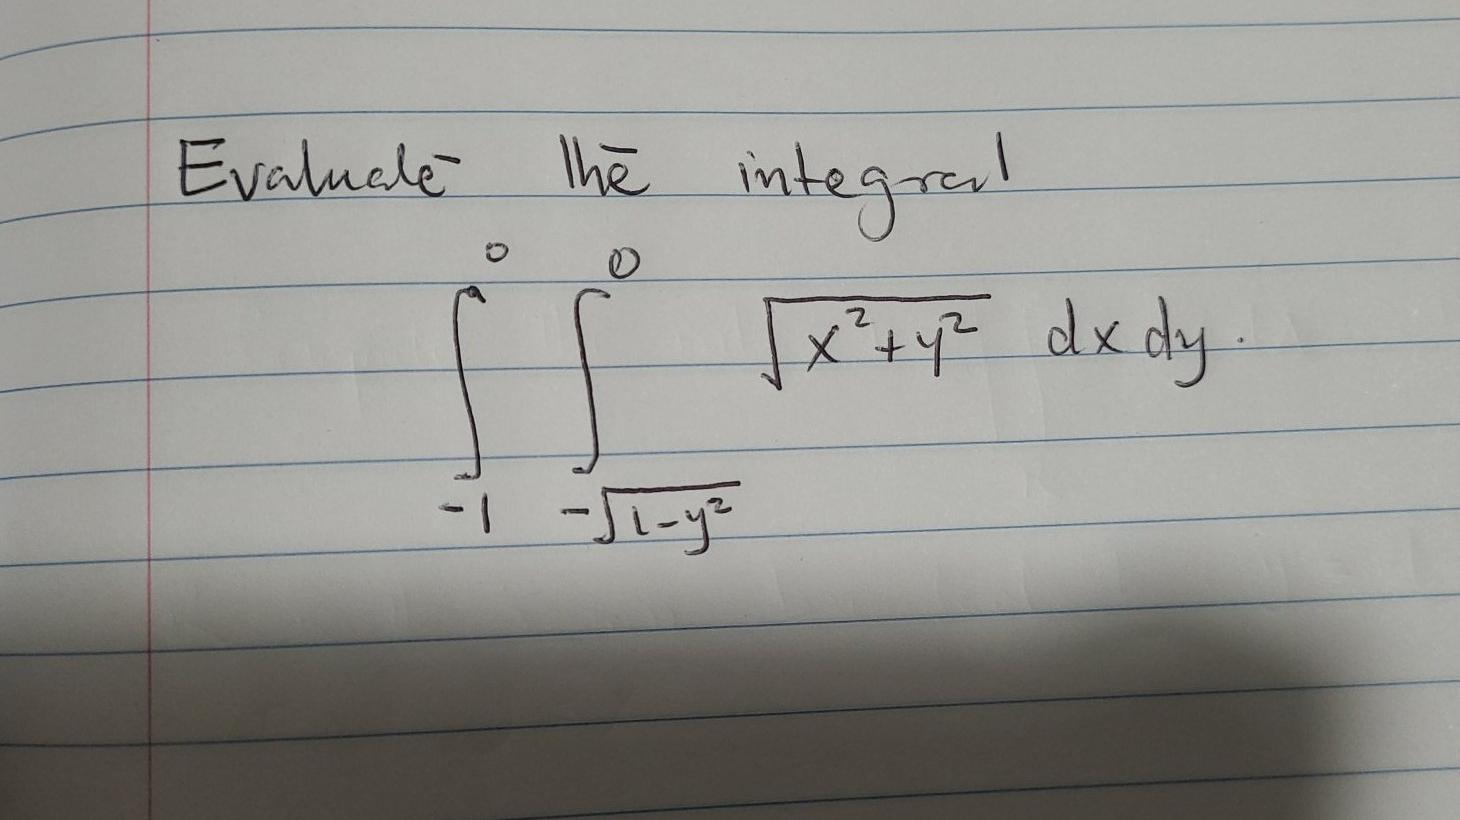 Evaluate the integral
∫_{-1}^{0} ∫_{-√(1-y²)}^{0} √(x²+y²) dx dy.